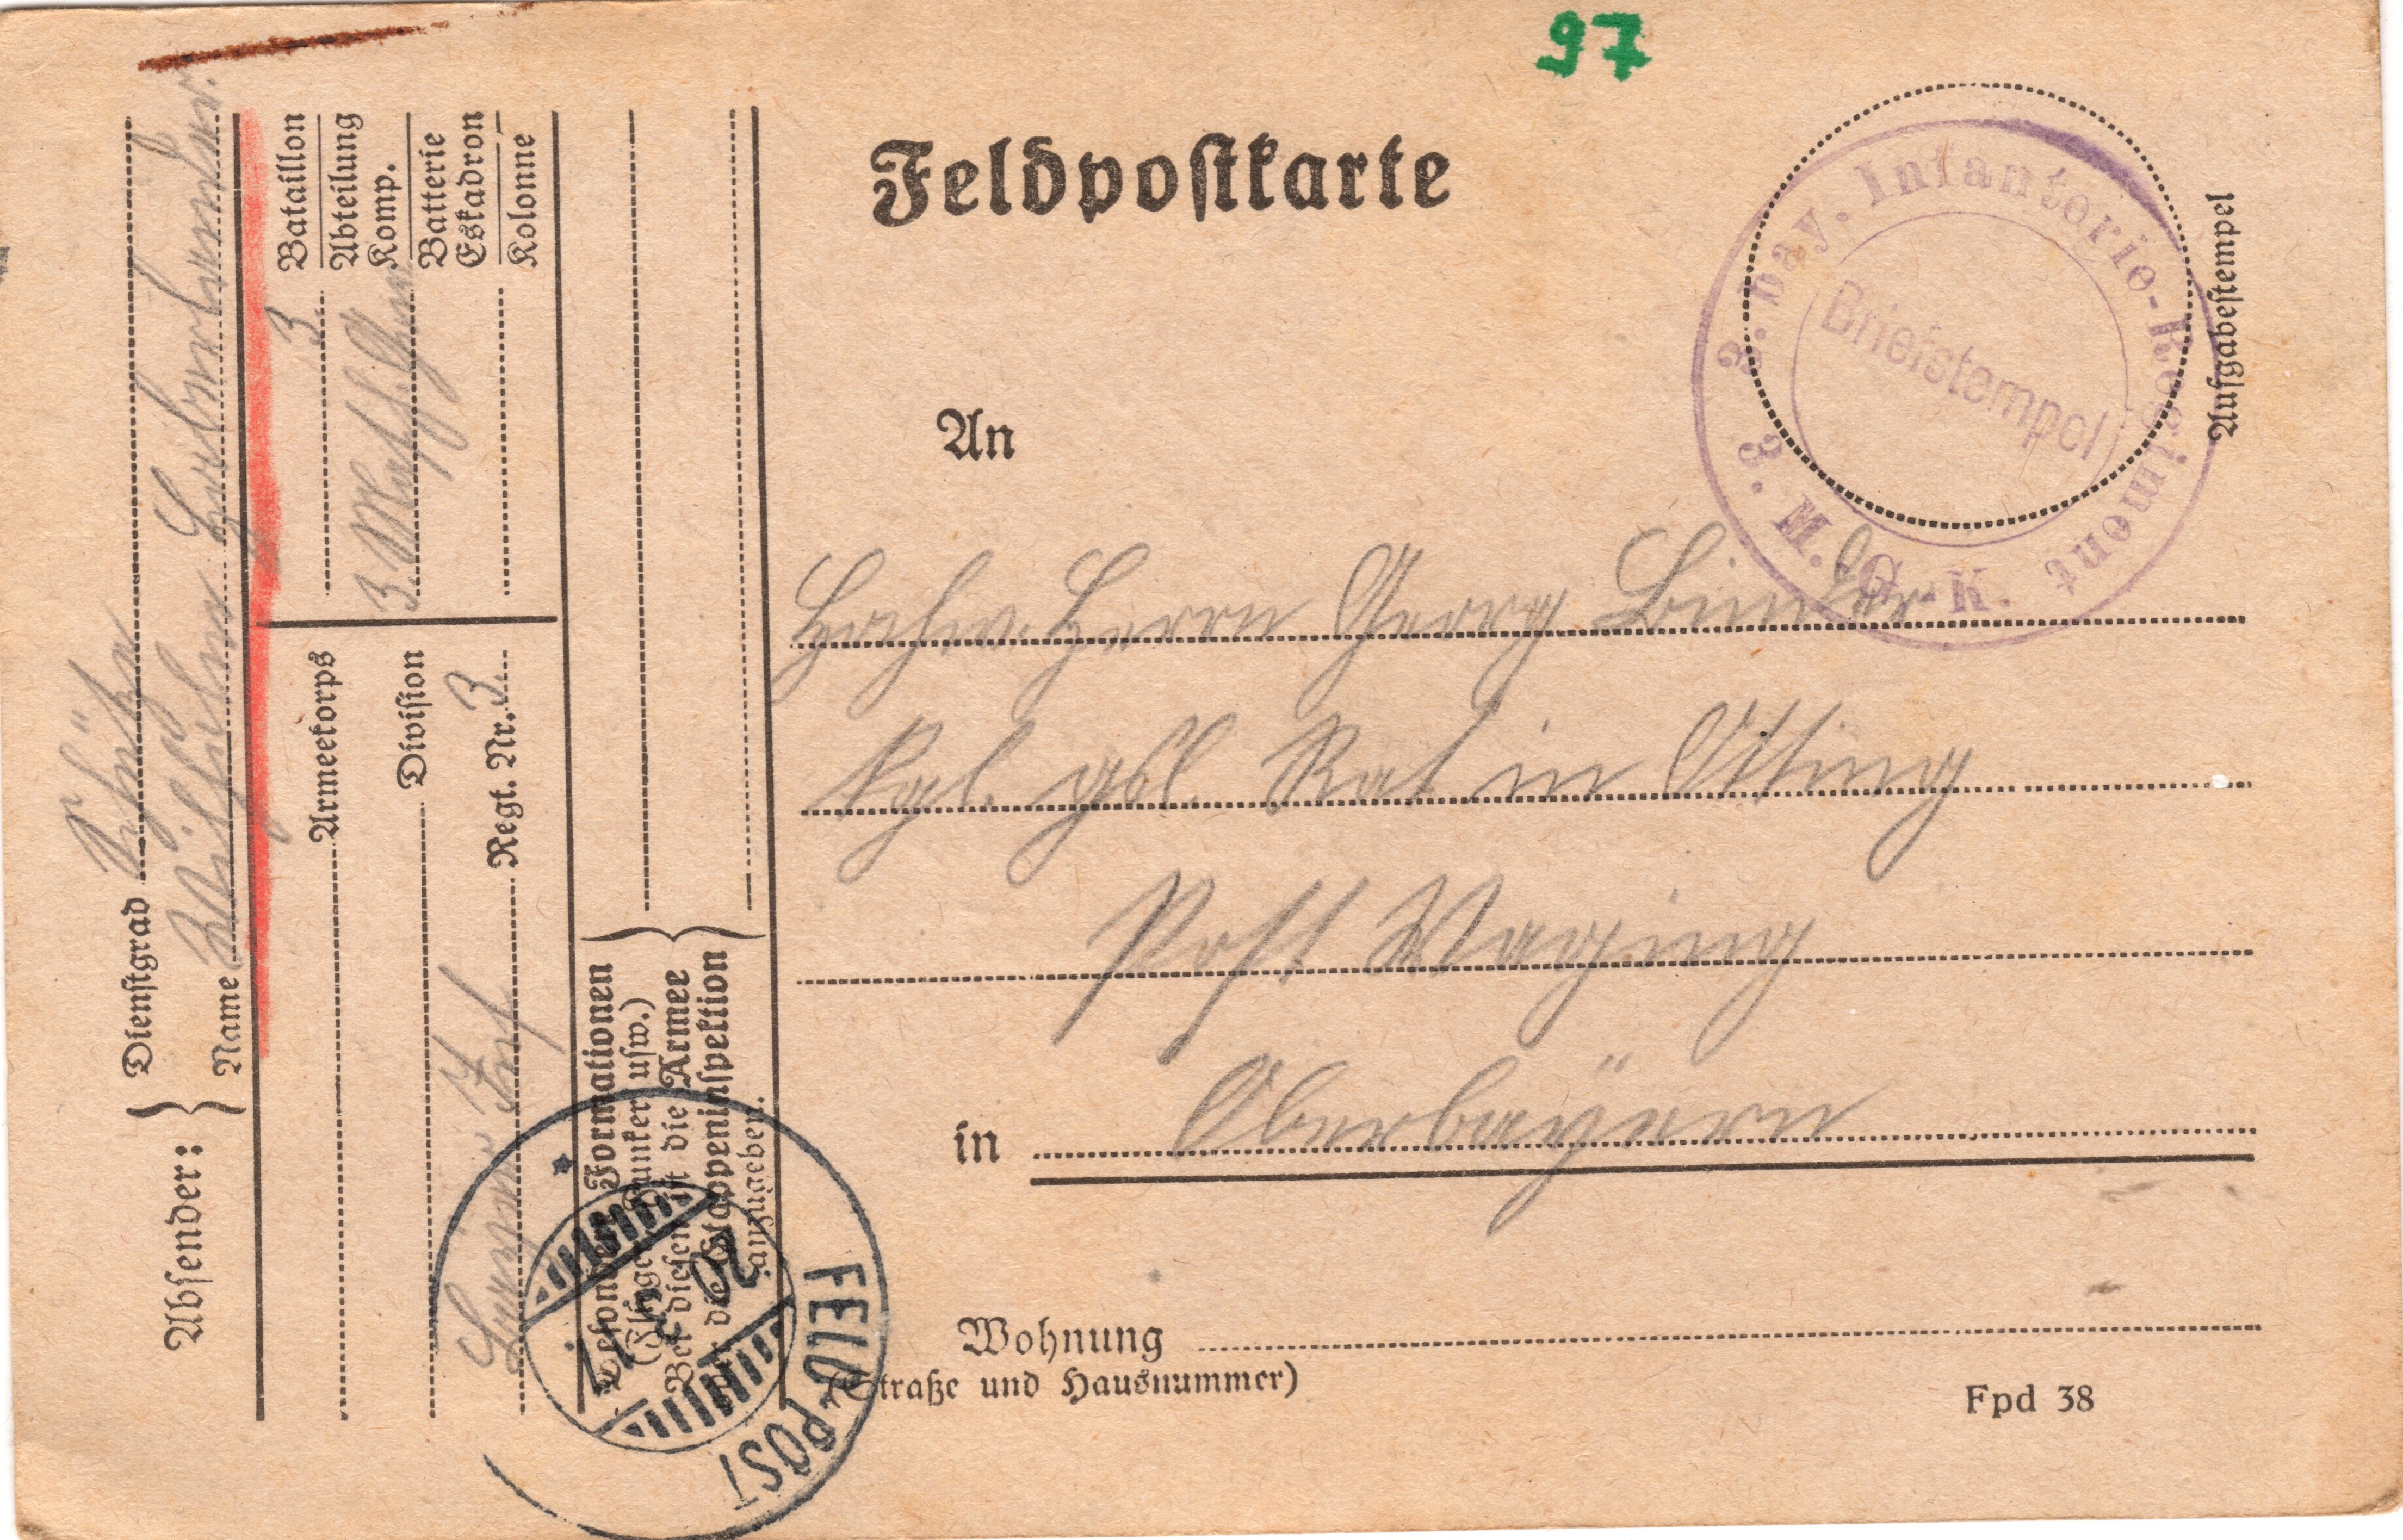 97
Feldpostkarte
3. bay. Infanterie-Regiment
3. M.-G.-K.
Briefstempel
Aufgabestempel
An
Hochw. Herrn Georg Binder
Kgl. gstl. Rat in Otting
Post Waging
in Oberbayern
Wohnung
(Straße und Hausnummer)
Fpd 38
Absender:
Dienstgrad Schütze
Name Wilhelm
3. Bataillon
Abteilung
3. Masch. Gew. Komp.
Batterie
Eskadron
Kolonne
Armeekorps
Division
Inf. Regt. Nr. 3.
Besondere Formationen
(Flieger, Funker usw.)
Bei diesen ist die Armee
oder die Etappeninspektion
anzugeben.
FELD-POST